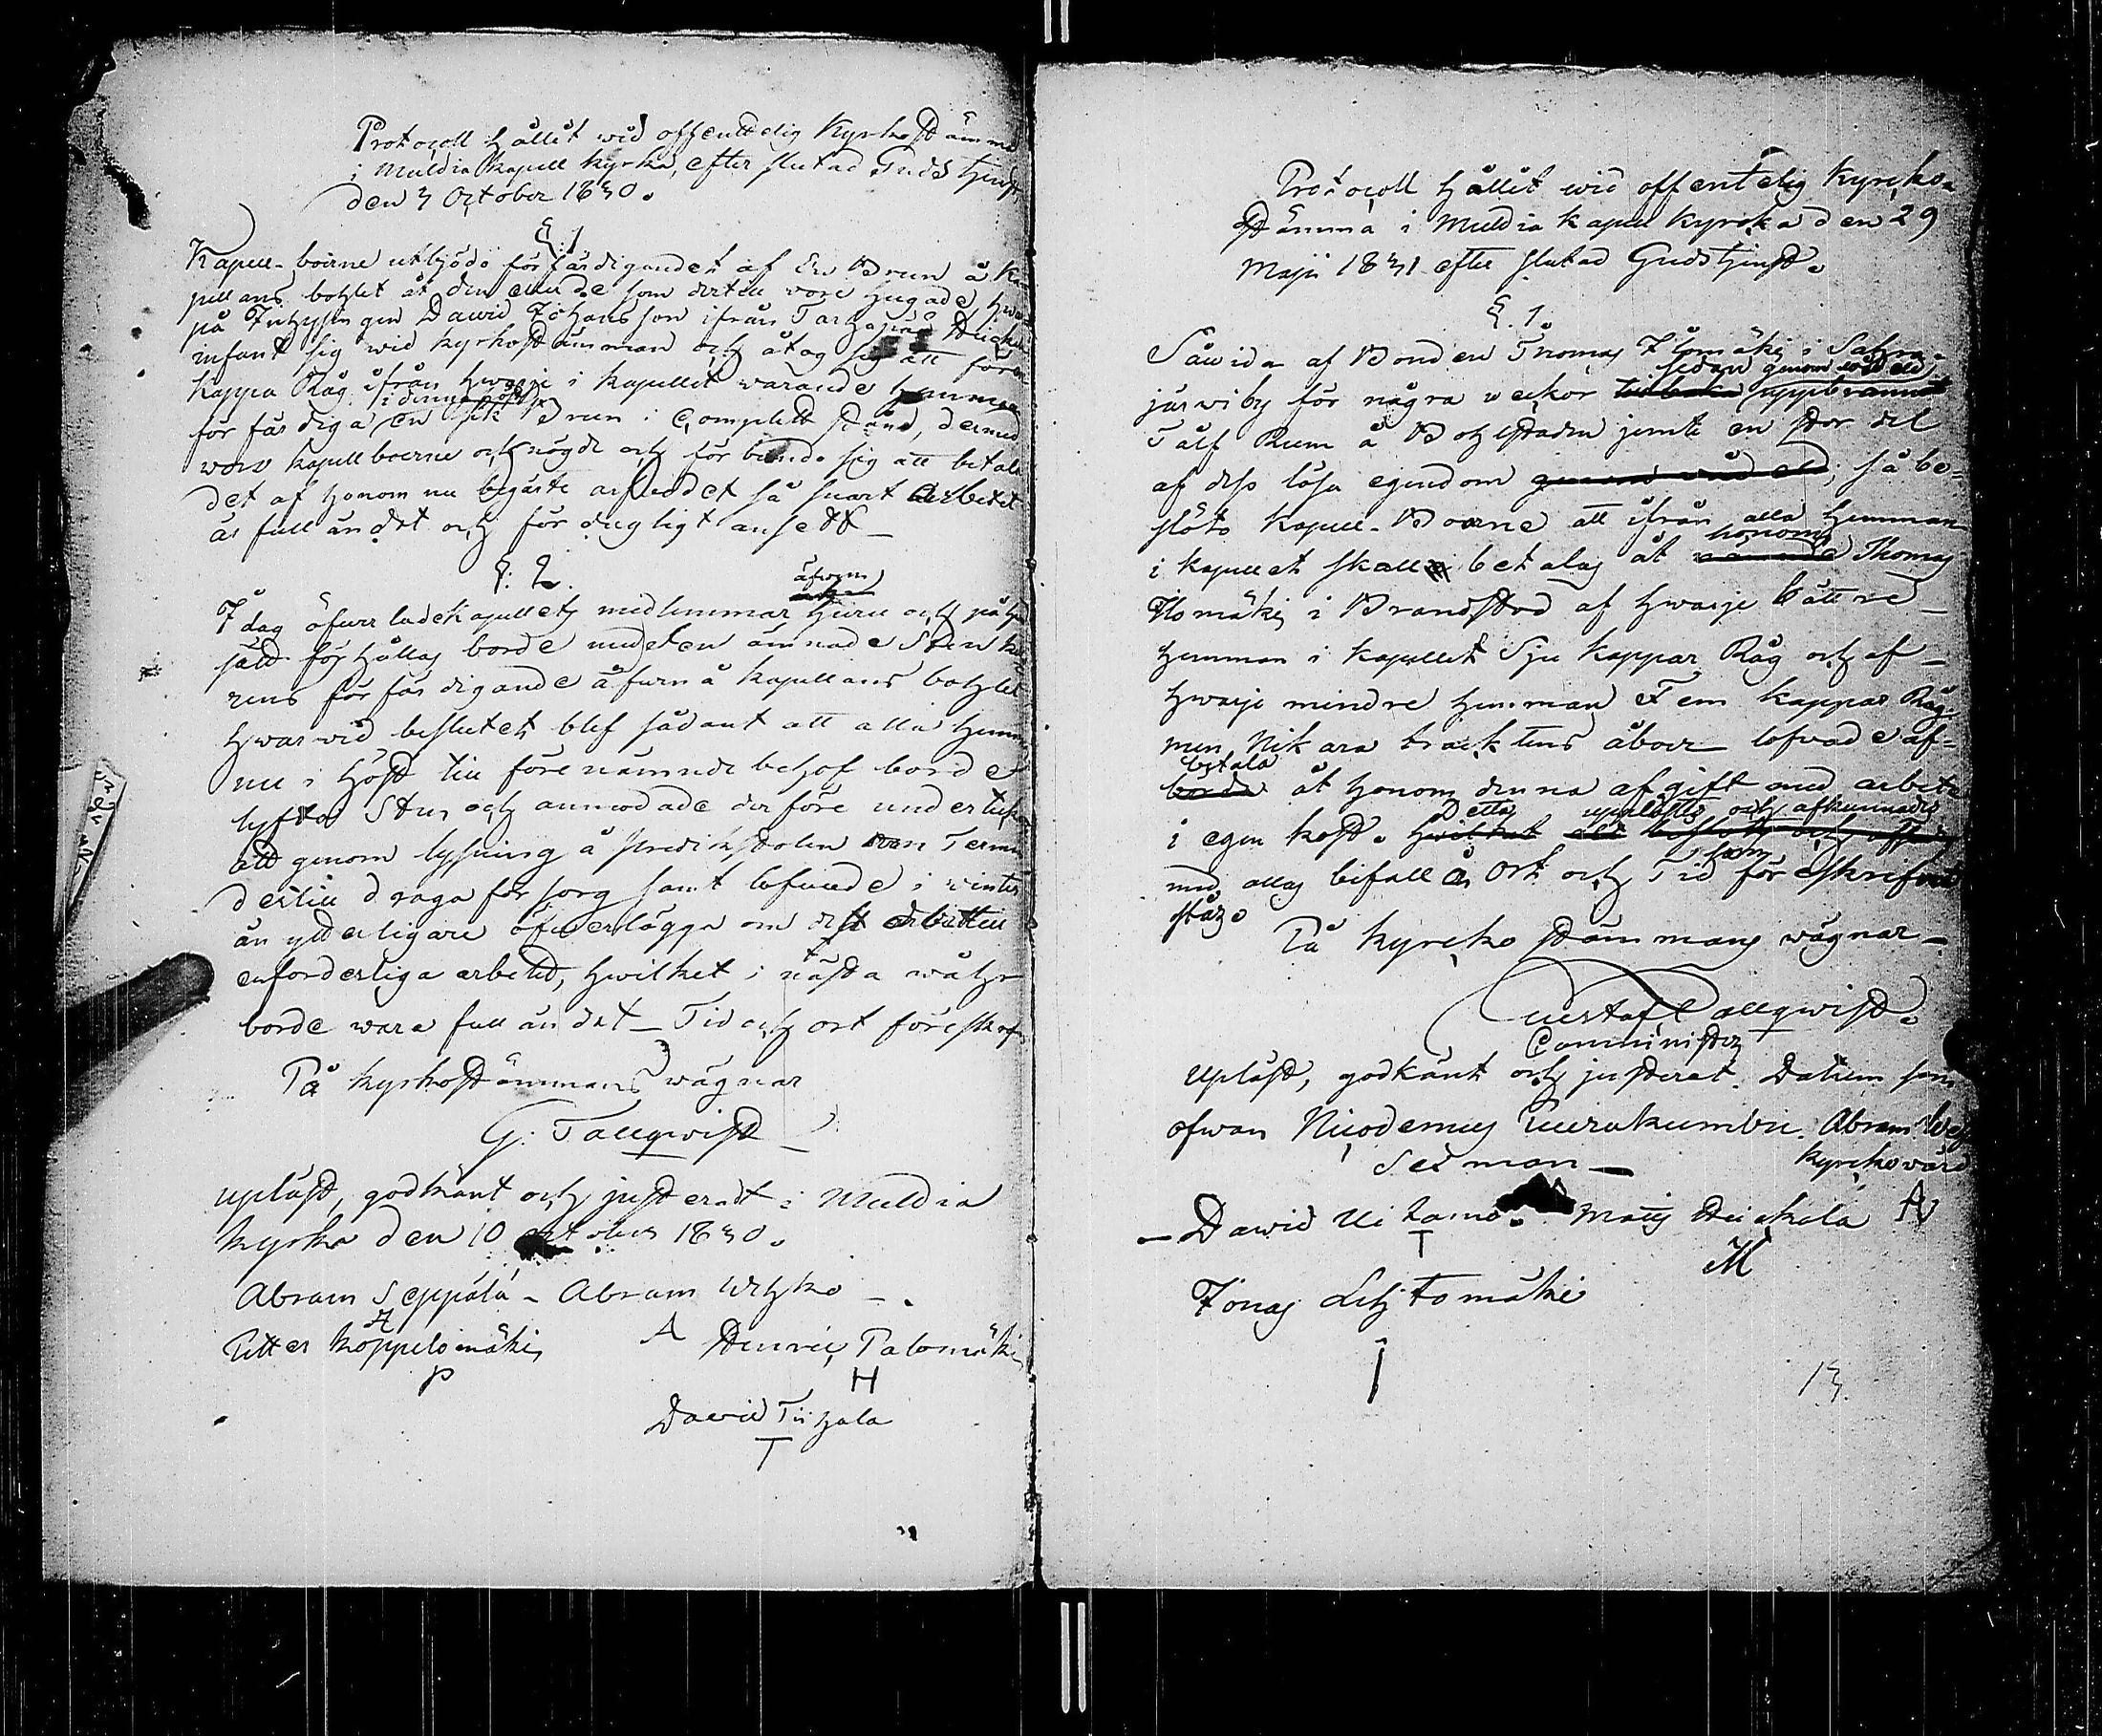 Protocoll hållit wid offenttelig Kyrkostämma
i Muldia kapell kyrka, efter slutad Gudstjenst
den 3 October 1830.
§. 1
Kapell-boerne utbjödo förfärdigandet af en Brun å Ka-
pellans bohlet åt den eller de som dertill vore hugade, hwar
på Inhysingen Dawid Johansson ifrån
infant sig wid kyrkostämman och åtog sig att för en
kappa Råg ifrån hwarje i kapellet warande hemman
i denna höst
förfärdiga en Brun i Complett stånd, dermed
woro kapellboerne ock nögde och förbundo sig att betala
det af honom nu begärte arfwodet så snart arbetet
är fulländat och för dugligt ansedt _
§. 2.
äfwen
I dag öfwerlade kapellets medlemmar huru och på hwad
sätt förhållas borde med den ämnade Sten
rens förfärdigande äfwen å kapellans bohlet
hwarwid beslutet blef sådant att alla hemman
nu i höst till förenämnde behof borde
lyfta Sten och anmodade derföre
att genom lysning å Predikstolen Termin
dertill draga försorg samt lofwade i winter
än ytterligare öfwerlägga om det dertill
erforderliga arbetet, hwilket i nästa wåhr
borde wara fulländat _ Tid och ort föreskref:
På kyrkostämmans wägnar
G. Tallqwist _
Upläst, godkänt och justeradt i Muldia
kyrka den 10 october 1830.
Abram Seppälä - Abram Wehko _ .
A
Petter Koppelomäki A Henric Palomäki
P H
David Tiihala
T
Protocoll hållit wid offentelig Kyrcko-
stämma i Muldia kapell kyrcka den 29
Maji 1831 efter slutad Gudstjenst.
§. 1.
Såwida af Bonden Thomas Ilomäki i Sahra-
sedan genom wådeld
järwi by för några weckor tilbaka uppbrannit
Tålf Rum å Bohlstaden jemte en stor del
af dess lösa egendom genom wådeld; så be-
slöto Kapell-Boerne att ifrån alla hemman
honom
i kapellet skall betalas åt Thomas
Ilomäki i Brandstod af hwarje bättre _
hemman i kapellet Sju kappar Råg och af _
hwarje mindre hemman Fem kappar Råg
men Nikara tracktens åboer lofwade af-
betala
borda åt honom denna afgift med arbete
Detta upplästes och afkunnades
i egen kost. hwilket
som
med allas bifall å Ort och Tid föreskrifwit
står.
På Kyrcko stämmans wägnar _
Gustaf Tallqwist.
Comminister
Upläst, godkänt och justerat. Datum som
ofwan Nicodemus Tuurakumbu. Abram Weh
Sexman _ Kyrckowärd
_ Dawid Uitamo. Matts Heickilä A
T M
Jonas Lehtomäki
I
13.